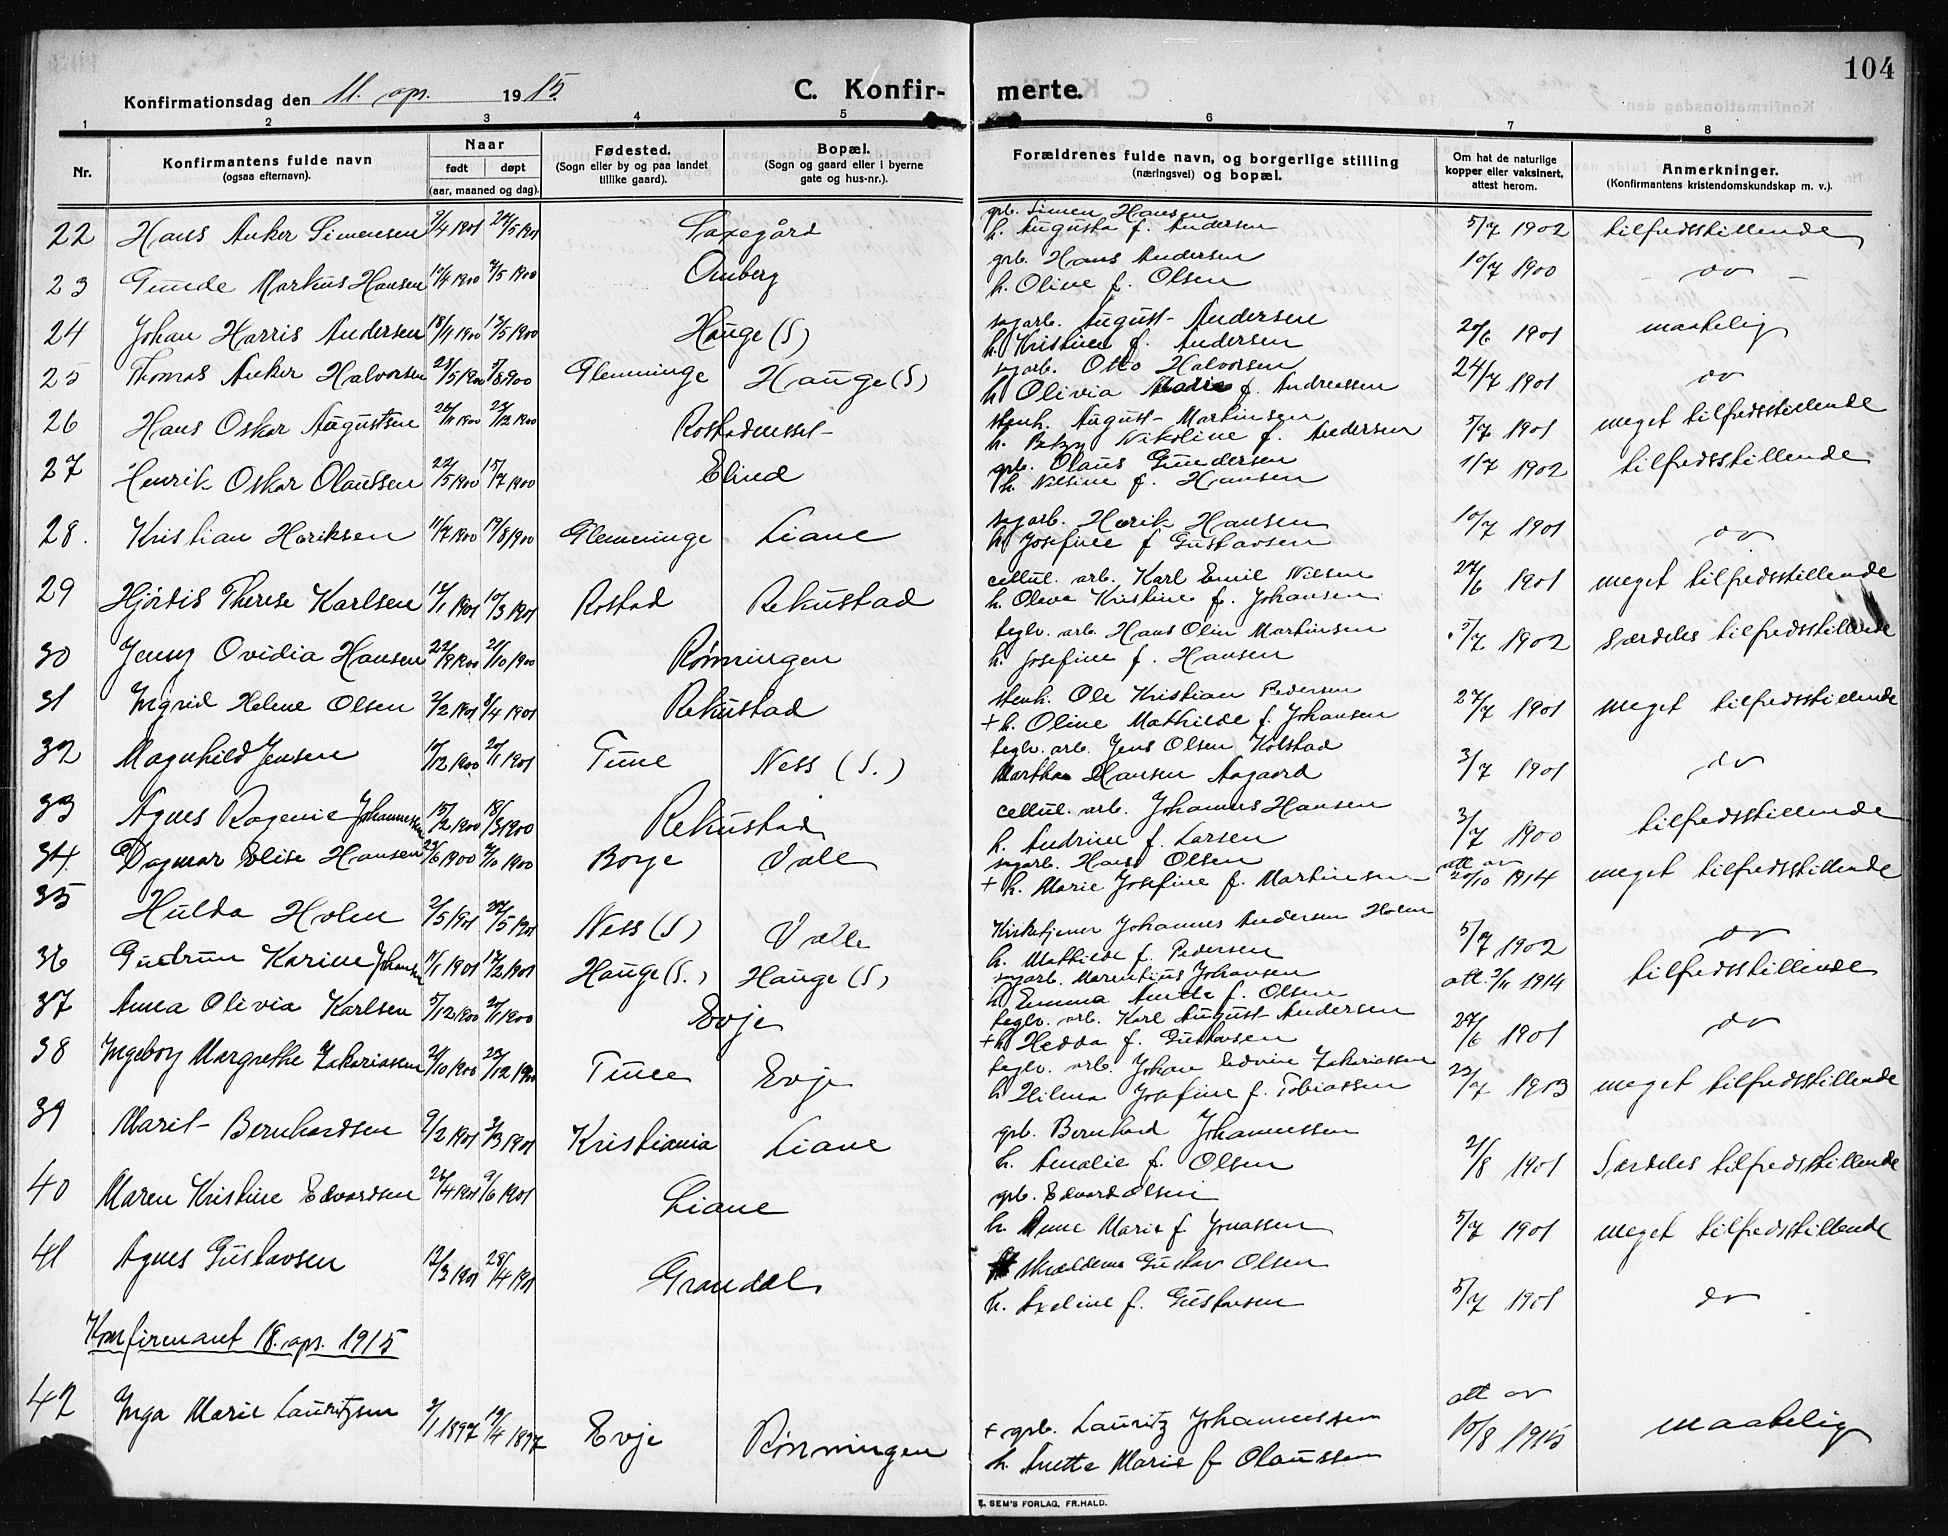 104
Konfirmationsdag den 11. apr. 1915
C. Konfirmerte.
1 2 3 4 5 6 7 8
Nr. Konfirmantens fulde navn (ogsaa efternavn). Naar født døpt (aar, maaned og dag). Fødested. (Sogn eller by og paa landet tillike gaard). Bopæl. (Sogn og gaard eller i byerne gate og hus-nr.). Forældrenes fulde navn, og borgerlige stilling (næringsvei) og bopæl. Om hat de naturlige kopper eller vaksinert, attest herom. Anmerkninger. (Konfirmantens kristendomskundskap m. v.).
22 Hans Anker Simensen 2/4 1901 27/5 1901 Saxegård grb. Simen Hansen 5/7 1902 tilfredsstillende
h. Augusta f. Andersen
23 Gunde Markus Hansen /4 1900 /5 1900 Omberg grb. Hans Andersen 10/7 1900 - do -
h. Oline f. Olsen
24 Johan Harris Andersen 18/1 1900 /5 1900 Hauge (S) sagarb. August Andersen 20/6 1901 maatelig
h. Kristine f. Andersen
25 Thomas Anker Halvorsen 28/5 1900 5/8 1900 Glemminge Hauge (S) sagarb. Otto Halvorsen 24/7 1901 do
h. Olivia Marie f. Andreassen
26 Hans Oskar Augustsen /11 1900 /12 1900 Rostadmssel stenh. August Martinsen 5/7 1901 meget tilfredsstillende
h. Betzy Nikoline f. Andersen
27 Henrik Oskar Olaussen 22/5 1900 15/7 1900 Elind grb. Olaus Gundersen 1/7 1902 tilfredsstillende
h. Nilsine f. Hansen
28. Kristian Henriksen 11/7 1900 19/8 1900 Glemminge Liane sagarb. Henrik Hansen 10/7 1901 do
h. Josefine f Gustavsen
29 Hjördis Therese Karlsen 12/1 1901 10/3 1901 Rostad Rekustad cellul. arb. Karl Emil Nilsen 27/6 1901 meget tilfredsstillende
h. Oleva Kristine f. Johansen
30 Jenny Ovidia Hansen 22/9 1900 21/10 1900 Rønningen teglv. arb. Hans Olin Martinsen 5/7 1902 Særdeles tilfredsstillende
h. Josefine f. Hansen
31 Ingrid Helene Olsen 2/2 1901 8/4 1901 Rekustad stenh. Ole Kristian Pedersen 27/7 1901 meget tilfredsstillende
+ h. Oline Mathilde f. Johansen
32 Magnhild Jensen /12 1900 20/1 1901 Tune Ness (S.) teglv. arb. Jens Olsen Kolstad 3/7 1901 do
Martha Hansen Aagaard
33 Agnes Ragenie Johannessen 15/2 1900 18/3 1900 Rekustad cellul. arb. Johannes Hansen 3/7 1900 tilfredsstillende
h. Andrine f. Larsen
34. Dagmar Elise Hansen 23/6 1900 /10 1900 Borge Valle sagarb. Hans Olsen att av 20/10 1914 meget tilfredsstillende
+ h. Marie Josefine f. Martinsen
35 Hulda Holm 2/5 1901 27/5 1901 Ness (S) Valle Kirketjener Johannes Andersen Holm 5/7 1902 do
h. Mathilde f. Pedersen
36 Gudrun Karine Johansen 11/1 1901 17/2 1901 Hauge (S.) Hauge (S) sagarb. Marentius Johansen att. 3/11 1914 tilfredsstillende
h Emma Anette f. Olsen
37 Anna Olivia Karlsen 5/12 1900 20/1 1900 Evje teglv. arb. Karl August Andersen 27/6 1901 do
+ h Hedda f. Gustavsen
38 Ingeborg Margrethe Zakariassen 21/10 1900 23/12 1900 Tune Evje teglv. arb. Johan Edvin Zakariassen 23/7 1903 meget tilfredsstillende
h Hilma Josefine f. Tobiassen
39 Marit Bernhardsen 9/2 1901 3/3 1901 Kristiania Liane grb. Bernhard Johannessen 2/8 1901 Særdeles tilfredsstillende
h. Amalie f. Olsen
40 Maren Kristine Edvardsen 22/4 1901 9/6 1901 Liane grb. Edvard Olsen 5/7 1901 meget tilfredsstillende
h. Anne Marie f Jonassen
41 Agnes Gustavsen 12/3 1901 28/4 1901 Grandal Skrædder Gustav Olsen 5/7 1901 do
h. Axeline f. Gustavsen
Konfirmant 18. apr. 1915
42 Inga Marie Lauritzsen 2/1 1897 19/4 1897 Evje Rønningen + grb. Lauritz Johannessen att av 10/8 1915 maatelig
h. Anette Marie f Olaussen
E. SEM'S FORLAG, FR.HALD.